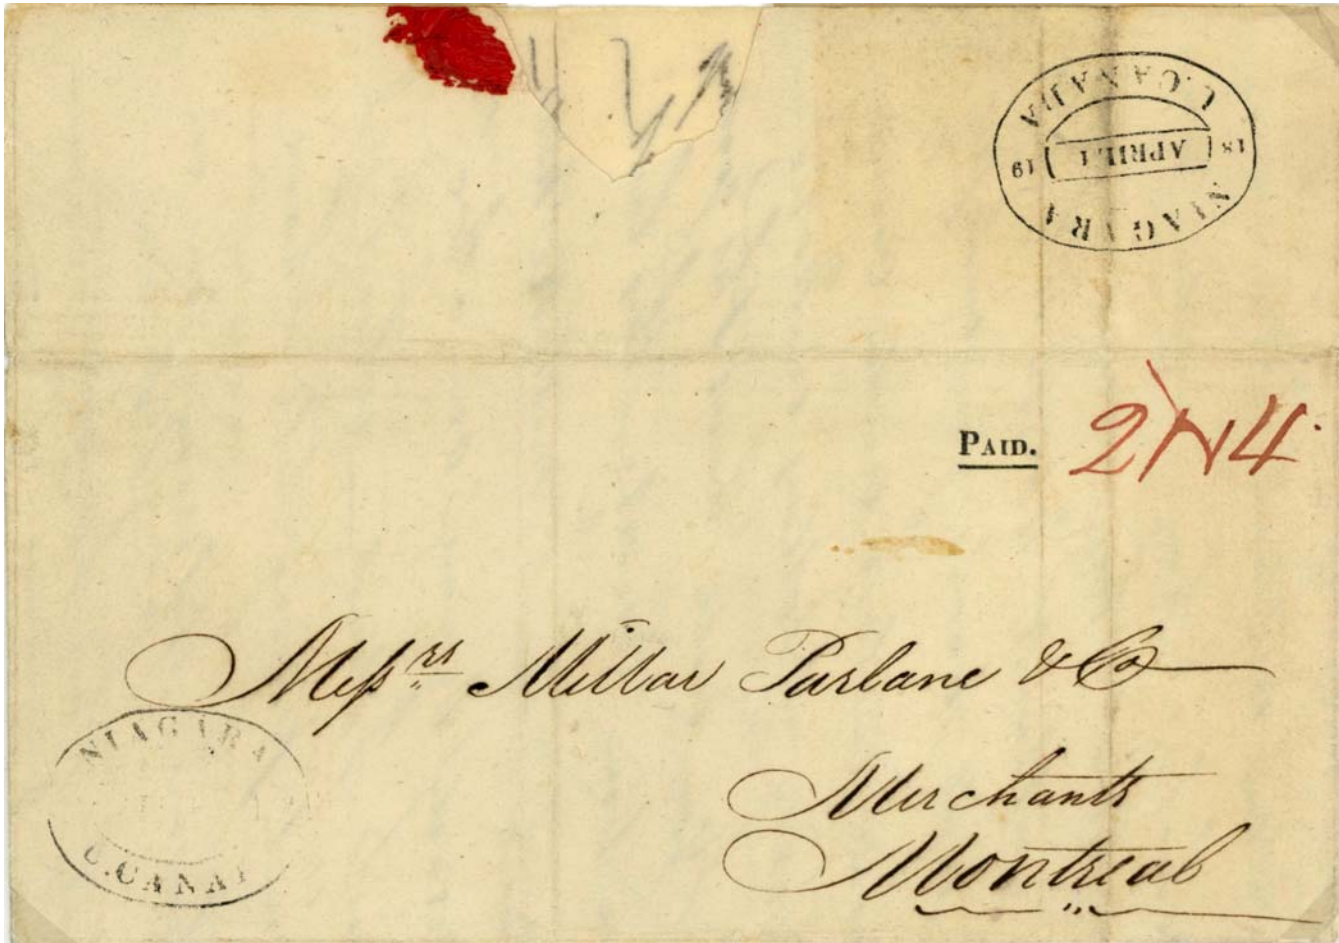 U.CANADA
18 APRIL 1 19
NIAGARA
PAID. 2/N4
Messrs Millar Parlane & Co
Merchants
Montreal
NIAGARA
U.CANA